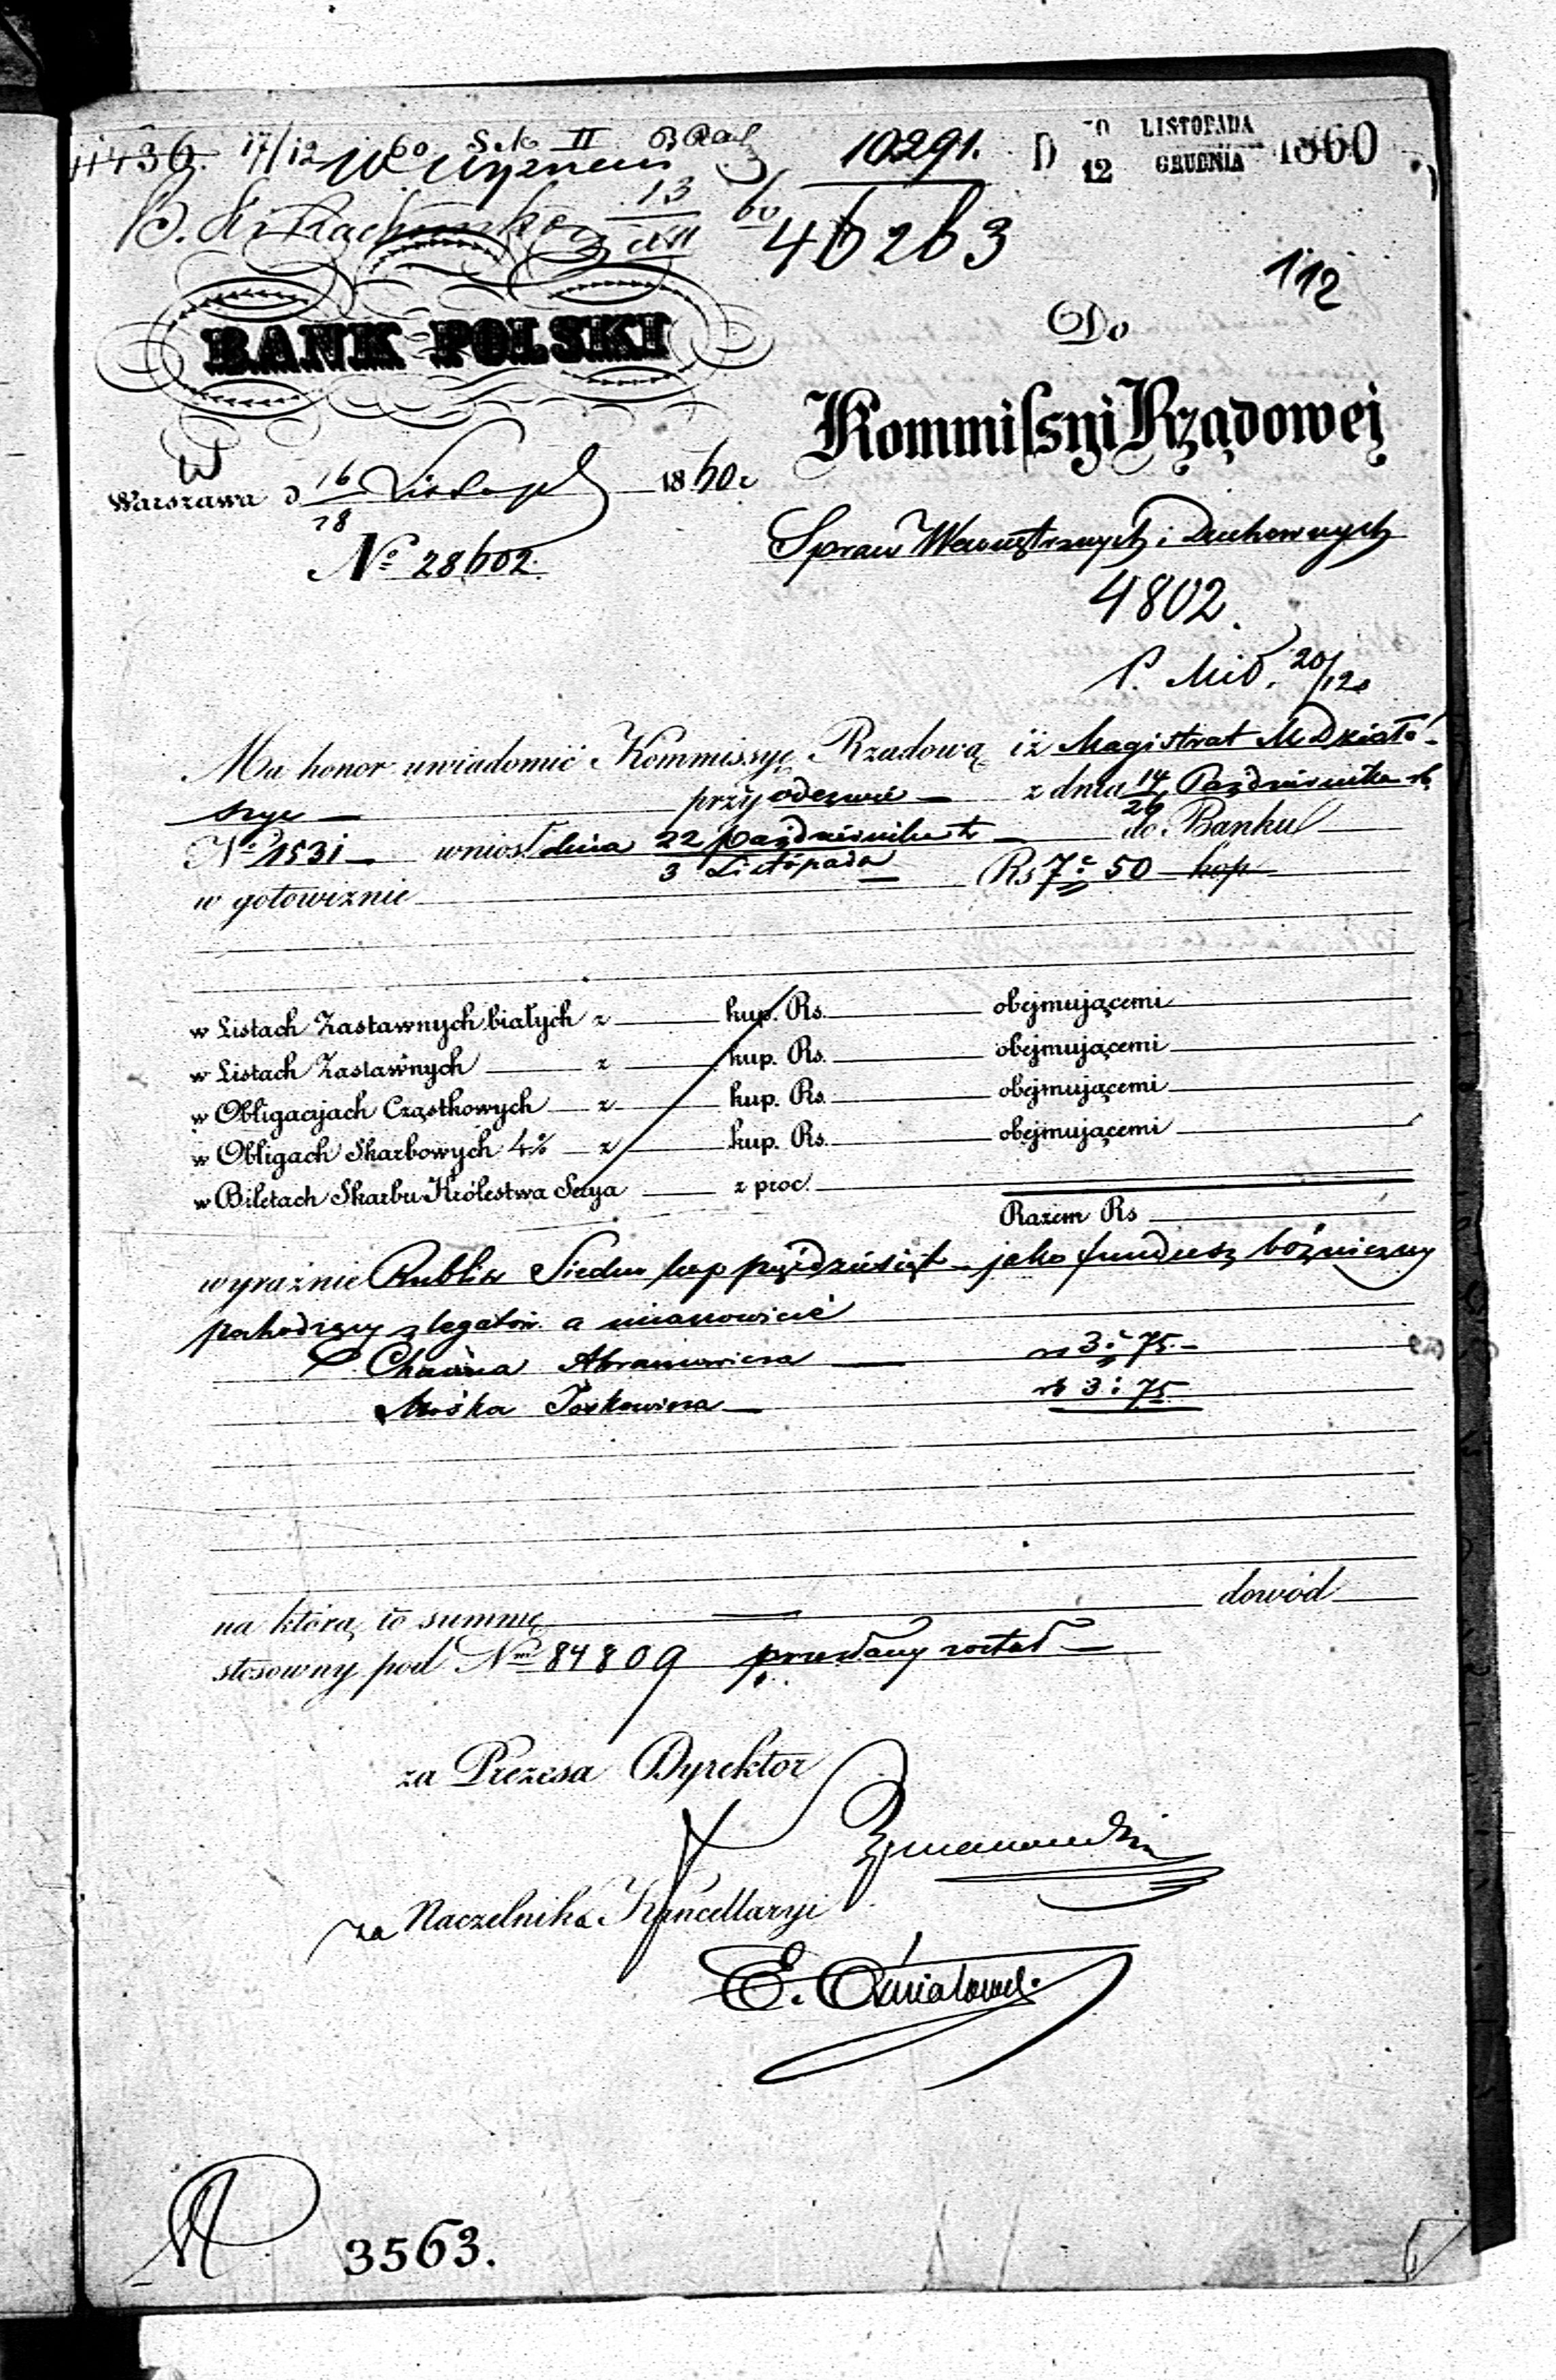 17/12 60 Sek II
10291.
D 30 LISTOPADA 1860
12 GRUDNIA
13 60
XII
46263
112
BANK POLSKI
Do
Kommissyi Rządowej
Warszawa d 16 Listopada 1860 r
28
Spraw Wewnętrznych i Duchownych
No 28602.
4802.
20/12
Ma honor uwiadomić Kommissyę Rządową iż Magistrat M Działo-
szyc — przy odezwie — z dnia 14 Października rb
26
No 1531 — wniosł dnia 22 października rb — do Banku
3 Listopada
w gotowiznie Rs 7 : 50 kop
w Listach Zastawnych białych z kup. Rs. obejmującemi
w Listach Zastawnych z kup. Rs. obejmującemi
w Obligacyjach Cząstkowych z kup. Rs. obejmującemi
w Obligach Skarbowych 4% z kup. Rs. obejmującemi
w Biletach Skarbu Królestwa Serya z proc.
Razem Rs
wyraźnie Rubli sr Siedm kop pięćdziesiąt — jako fundusz bóżniczny
pochodzący z legatów a mianowicie
Chaima Abramowicza — rs 3 : 75 —
Mośka Joskowicza — rs 3 : 75
na którą to summę — dowód
stosowny pod Nrm 84809 przesłany został —
za Prezesa Dyrektor
za Naczelnika Kancellaryi
3563.